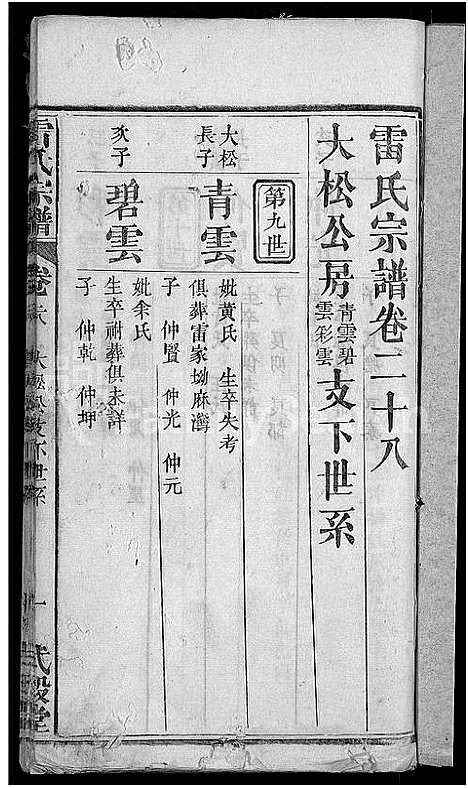 雷氏宗譜卷二十八
大松公房青雲碧雲彩雲支下世系
第九世
大松長子
青雲
妣黄氏 生卒失考
俱葬雷家坳麻灣
子 仲賢 仲光 仲元
次子
碧雲
妣余氏
生卒祔葬俱未詳
子 仲乾 仲坤
雷氏宗譜
卷
世系
一